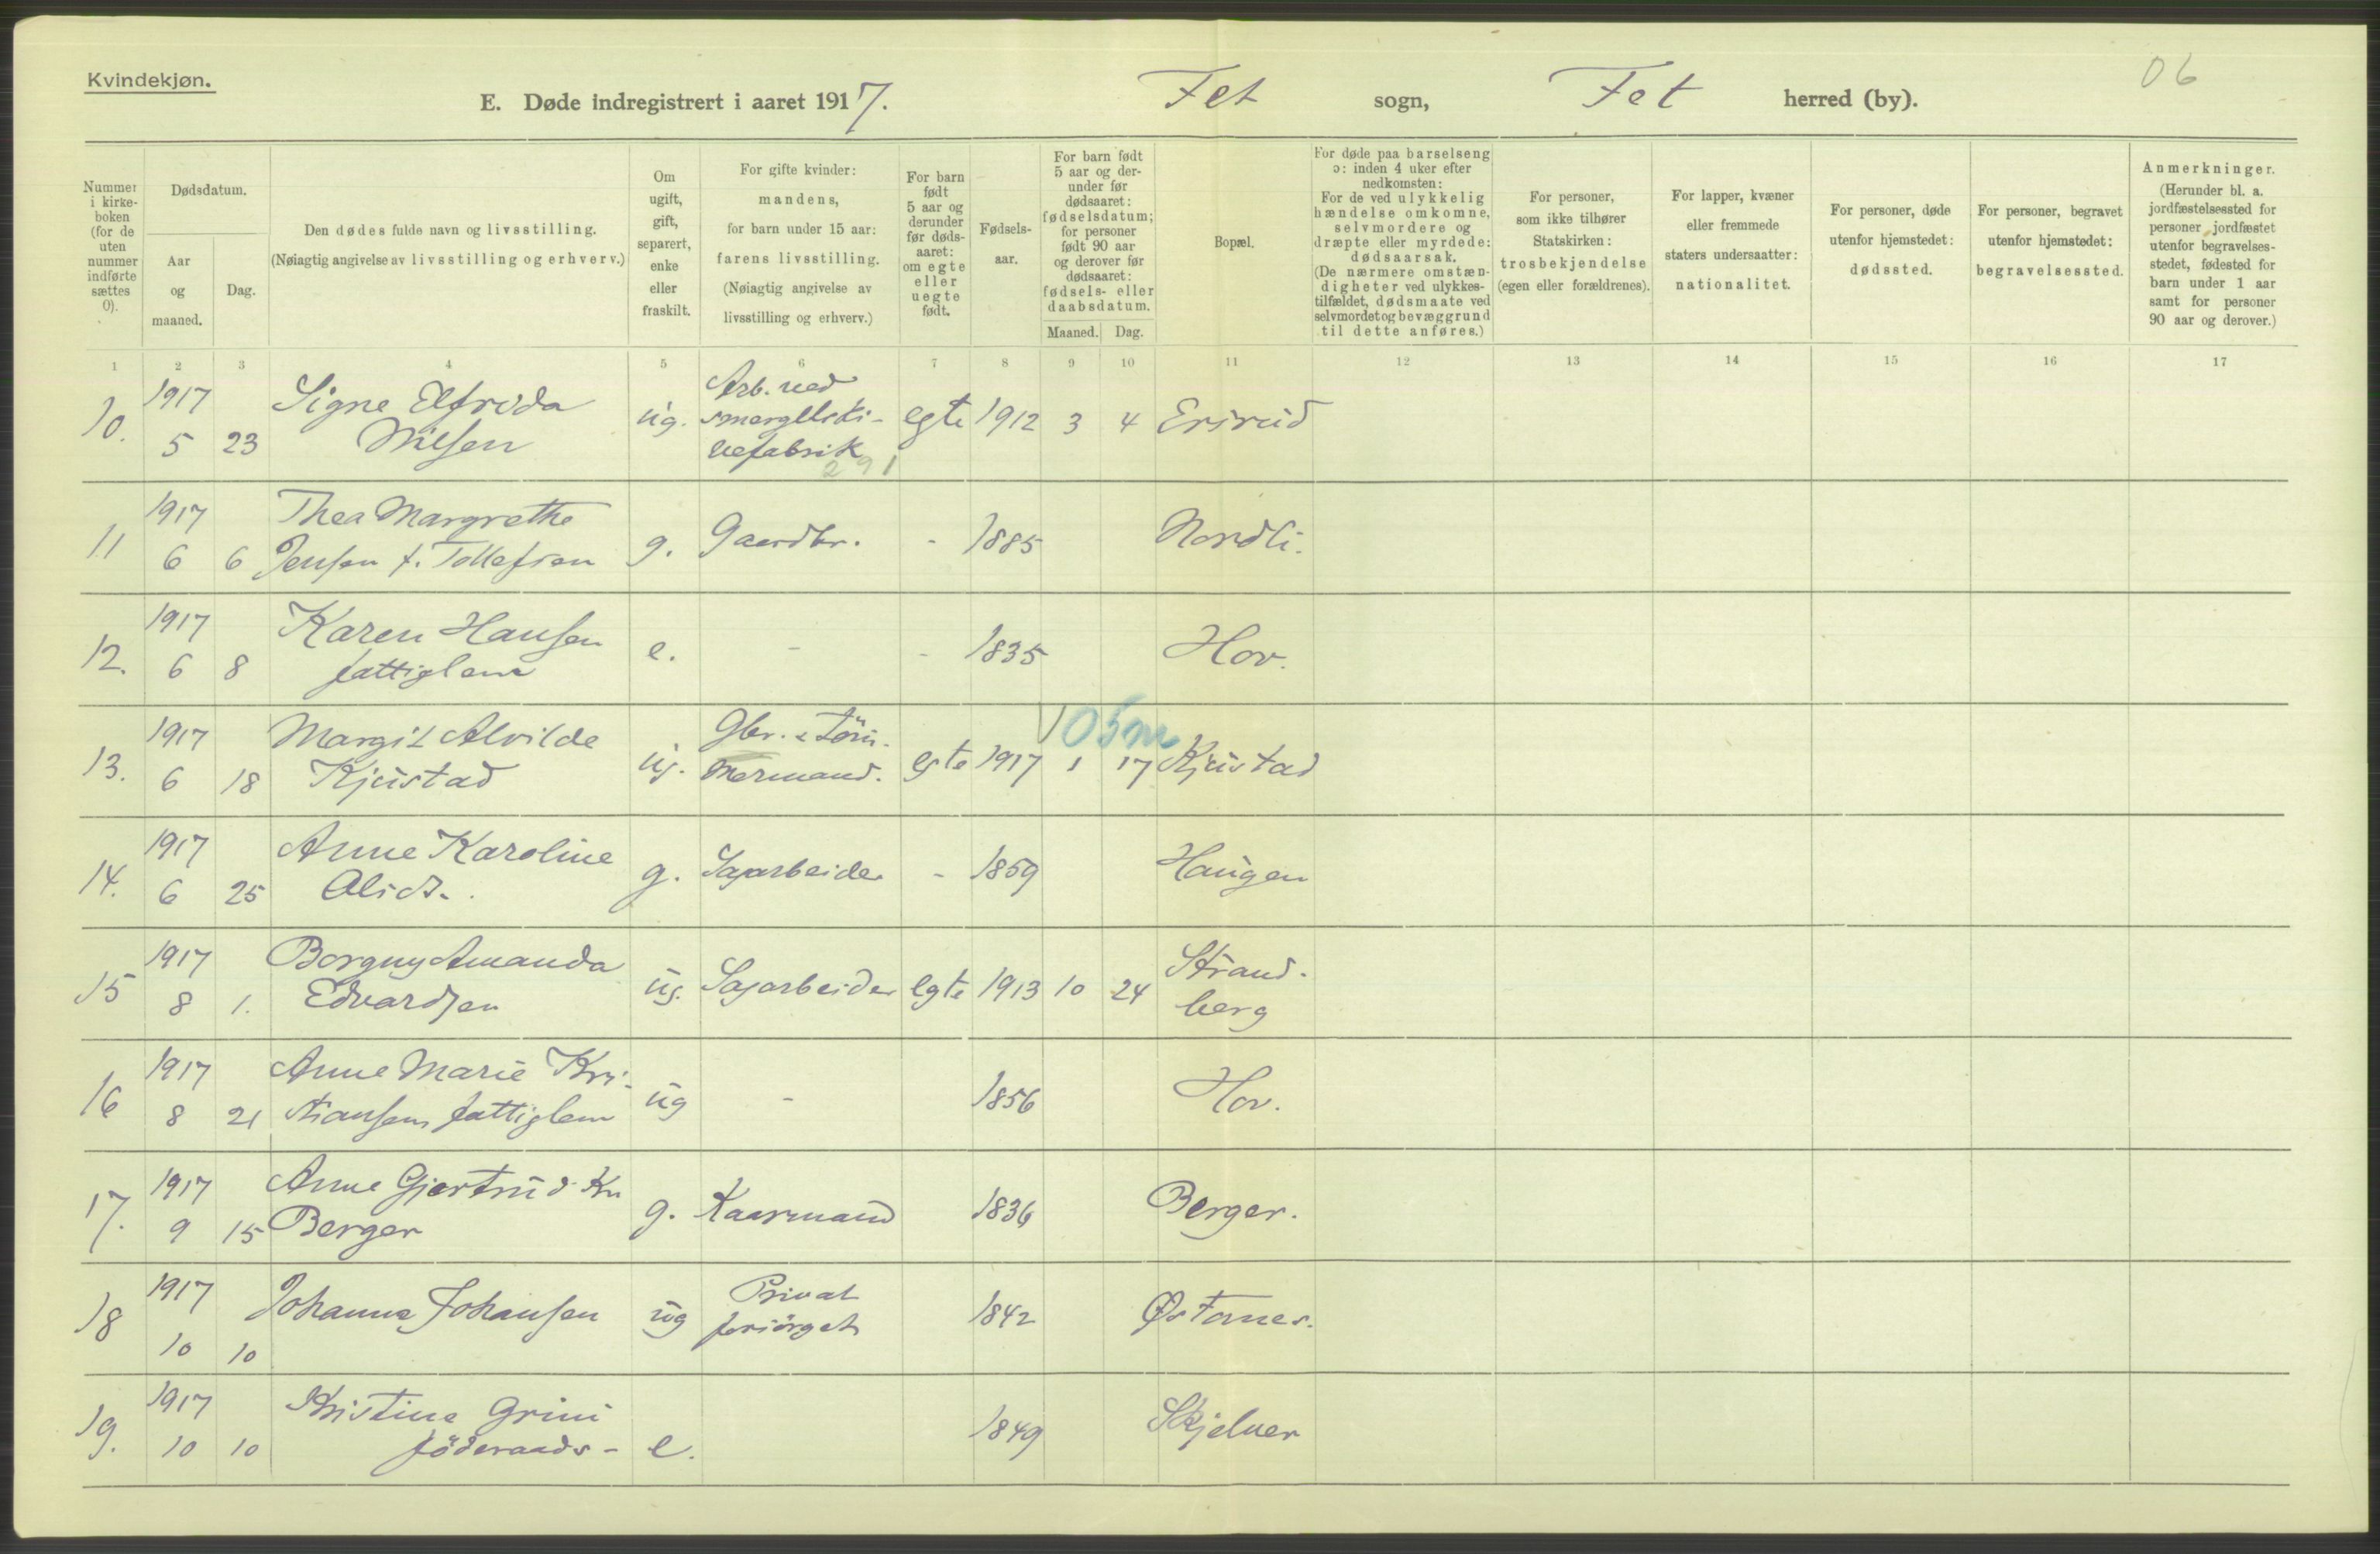 Kvindekjøn.
06
E. Døde indregistrert i aaret 1917. Fet sogn, Fet herred (by).
Nummer
i kirke-
boken
(for de
uten
nummer
indførte
sættes
0).
Dødsdatum.
Aar
og
maaned.
Dag.
Den dødes fulde navn og livsstilling.
(Nøiagtig angivelse av livsstilling og erhverv.)
Om
ugift,
gift,
separert,
enke
eller
fraskilt.
For gifte kvinder:
mandens,
for barn under 15 aar:
farens livsstilling.
(Nøiagtig angivelse av
livsstilling og erhverv.)
For barn
født
5 aar og
derunder
før døds-
aaret:
om egte
eller
uegte
født.
Fødsels-
aar.
For barn født
5 aar og der-
under før
dødsaaret:
fødselsdatum;
for personer
født 90 aar
og derover før
dødsaaret:
fødsels- eller
daabsdatum.
Maaned. Dag.
Bopæl.
For døde paa barselseng
ɔ: inden 4 uker efter
nedkomsten:
For de ved ulykkelig
hændelse omkomne,
selvmordere og
dræpte eller myrdede:
dødsaarsak.
(De nærmere omstæn-
digheter ved ulykkes-
tilfældet, dødsmaate ved
selvmordet og bevæggrund
til dette anføres.)
For personer,
som ikke tilhører
Statskirken:
trosbekjendelse
(egen eller forældrenes).
For lapper, kvæner
eller fremmede
staters undersaatter:
nationalitet.
For personer, døde
utenfor hjemstedet:
dødssted.
For personer, begravet
utenfor hjemstedet:
begravelsessted.
Anmerkninger.
(Herunder bl. a.
jordfæstelsessted for
personer jordfæstet
utenfor begravelses-
stedet, fødested for
barn under 1 aar
samt for personer
90 aar og derover.)
1 2 3 4 5 6 7 8 9 10 11 12 13 14 15 16 17
1917 Signe Elfrida Arb. ved
10. ug. smergelski- egte 1912 3 4 Ersrud
5 23 Nilsen vefabrik
291
1917 Thea Margrethe
11 g. Gaardbr. - 1885 Nordli.
6 6 Jensen f. Tollefsen
1917 Karen Hansen
12. e. - - 1835 Hov.
6 8 fattiglem
1917 Margit Alvilde Gbr. & töm- V 05m
13. ug. mermand. egte 1917 1 17 Kjustad
6 18 Kjustad
1917 Anne Karoline
14. g. Sagarbeider - 1859 Haugen
6 25 Olsdt.
1917 Borgny Amanda Strand-
15 ug. Sagarbeider egte 1913 10 24 berg
8 1. Edvardsen
1917 Anne Marie Kri-
16 ug - 1856 Hov.
8 21 stiansen fattiglem
1917 Anne Gjertrud Kr.
17. g. Kaarmand 1836 Berger.
9 15 Berger
1917 Privat
18 Johanne Johansen ug forsörget 1842 Østanes.
10 10
1917 Kristine Grini
19. e. 1849 Skjelver
10 10 föderaads-